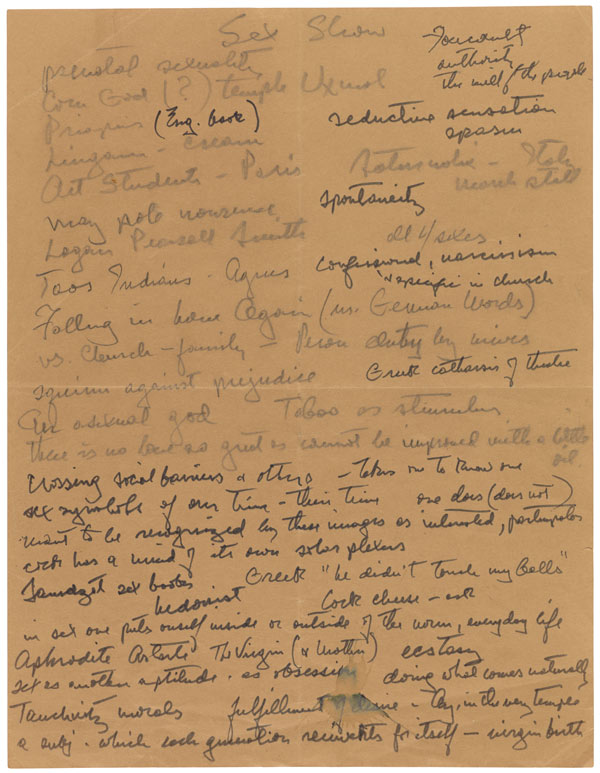 Sex Show
Foucault
authority
the will of the people
prenatal sexuality
Corn God (?) temple Uxmal
Priapus (Eng. book)
seductive sensation
spasm
Lingam - cream
Art Students - Paris
Italy
march still
spontaneity
may pole nonsense
Logan Pearsall Smith
all 4 sexes
confessional, narcissism
in church
Taos Indians - Agnes
Falling in love Again (vs. German Words)
vs. Church - family - duty by wives
against prejudice
Greek catharsis of theatre
An asexual god Taboo as stimulus
there is no love so great as cannot be improved with a little
oil.
Crossing social barriers & others - takes one to know one
sex symbols of our time - their time one does (does not)
want to be recognized by these images as interested,
cock has a mind of its own solar plexus
sex books Greek "he didn't touch my balls"
hedonist Cock cheese - ask
in sex one puts oneself inside or outside of the norm, everyday life
Aphrodite Astarte The Virgin (& Mother) ecstasy
sex as another aptitude - as obsession doing what comes naturally
morals fulfillment of desire - in the very temple
a subj. which each generation reinvents for itself - virgin birth